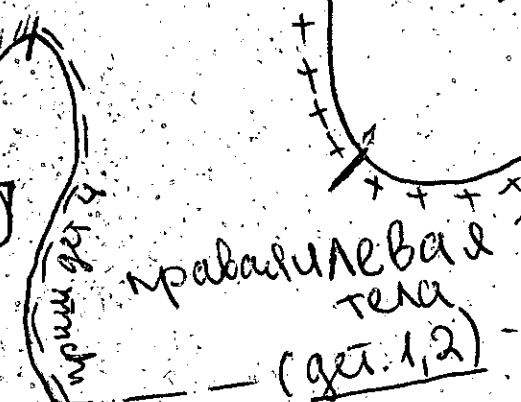 прим. дет. 4.
правая и левая
тела
(дет. 1,2)